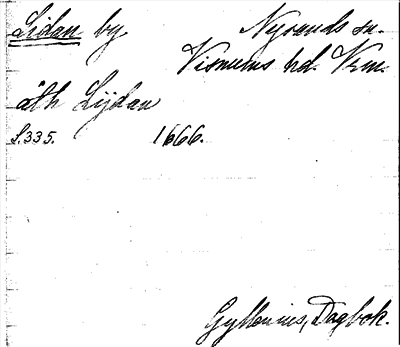 Lidan by Nysunds sn.
Visnums hd. Vrm.
åth Lijdan
S. 335. 1666.
Gyllenius, Dagbok.